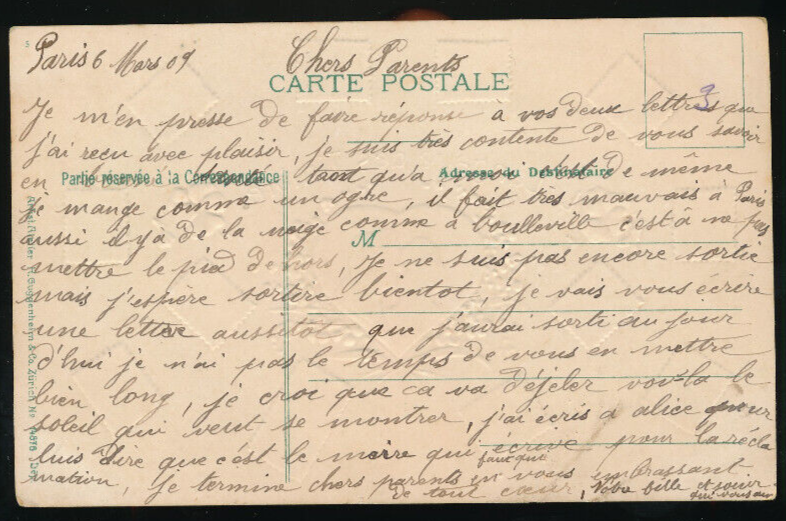 Paris 6 Mars 09 Chers Parents
CARTE POSTALE
Je m'en presse de faire réponse a vos deux lettres que
j'ai reçu avec plaisir, je suis très contente de vous savoir
en santé tant qu'a moi c'est de même
Partie réservée à la Correspondance
Adresse du Destinataire
je mange comme un ogre, il fait tres mauvais à Paris
aussi il y a de la neige comme a boulleville c'est a ne pas
M
mettre le pied dehors, Je ne suis pas encore sortie
mais j'espère sortire bientot, je vais vous écrire
une lettre aussitot que j'aurai sorti au jour
d'hui je n'ai pas le temps de vous en mettre
bien long, je croi que ca va déjeler voi-la le
soleil qui veut se montrer, j'ai écris a alice pour
luis dire que c'est le maire qui écrive pour la récla
faut que
mation, je termine chers parents en vous embrassant
de tout cœur, Votre fille et soeur
qui vous aim
Guggenheim & Co, Zürich No